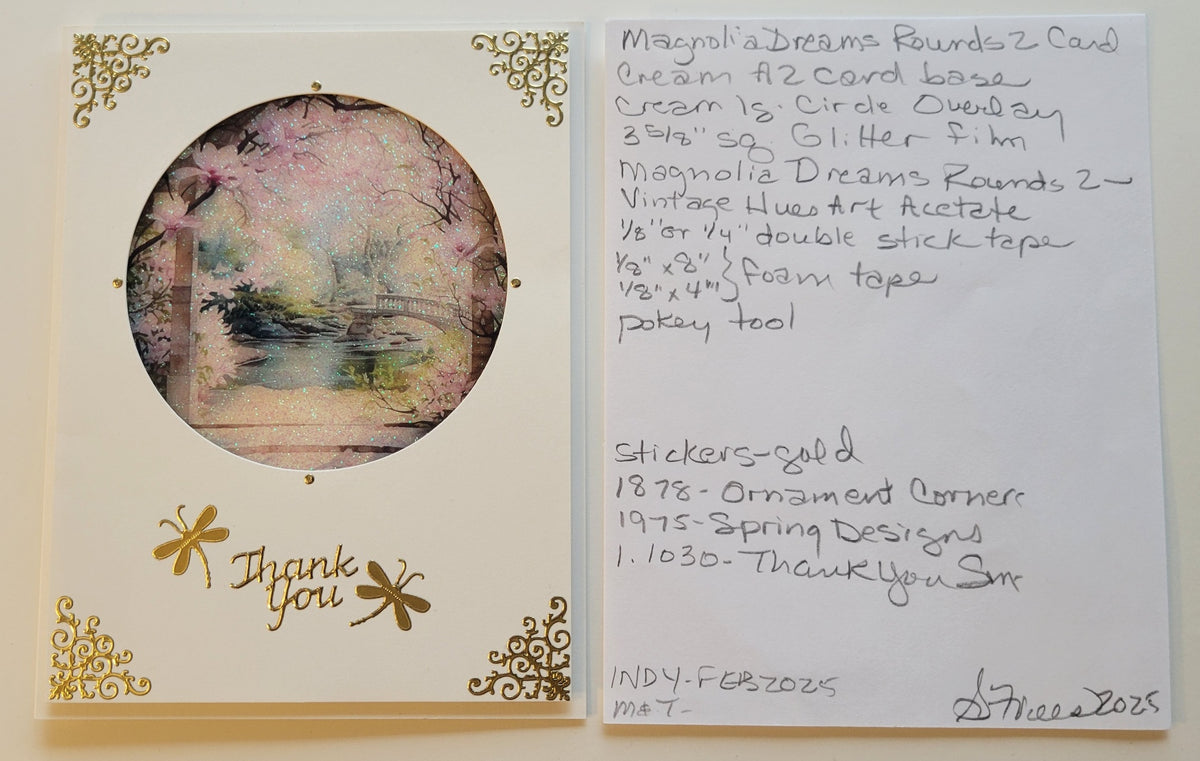 Thank
You
Magnolia Dreams Rounds 2 Card
Cream A2 card base
Cream lg. Circle Overlay
3 5/8" sq. Glitter film
Magnolia Dreams Rounds 2-
Vintage Hues Art Acetate
1/8" or 1/4" double stick tape
1/8" x 8" } foam tape
1/8" x 4" }
pokey tool
stickers-gold
1878- Ornament Corners
1975- Spring Designs
1.1030- Thank You Sm
INDY-FEB 2025
M&T-
2025